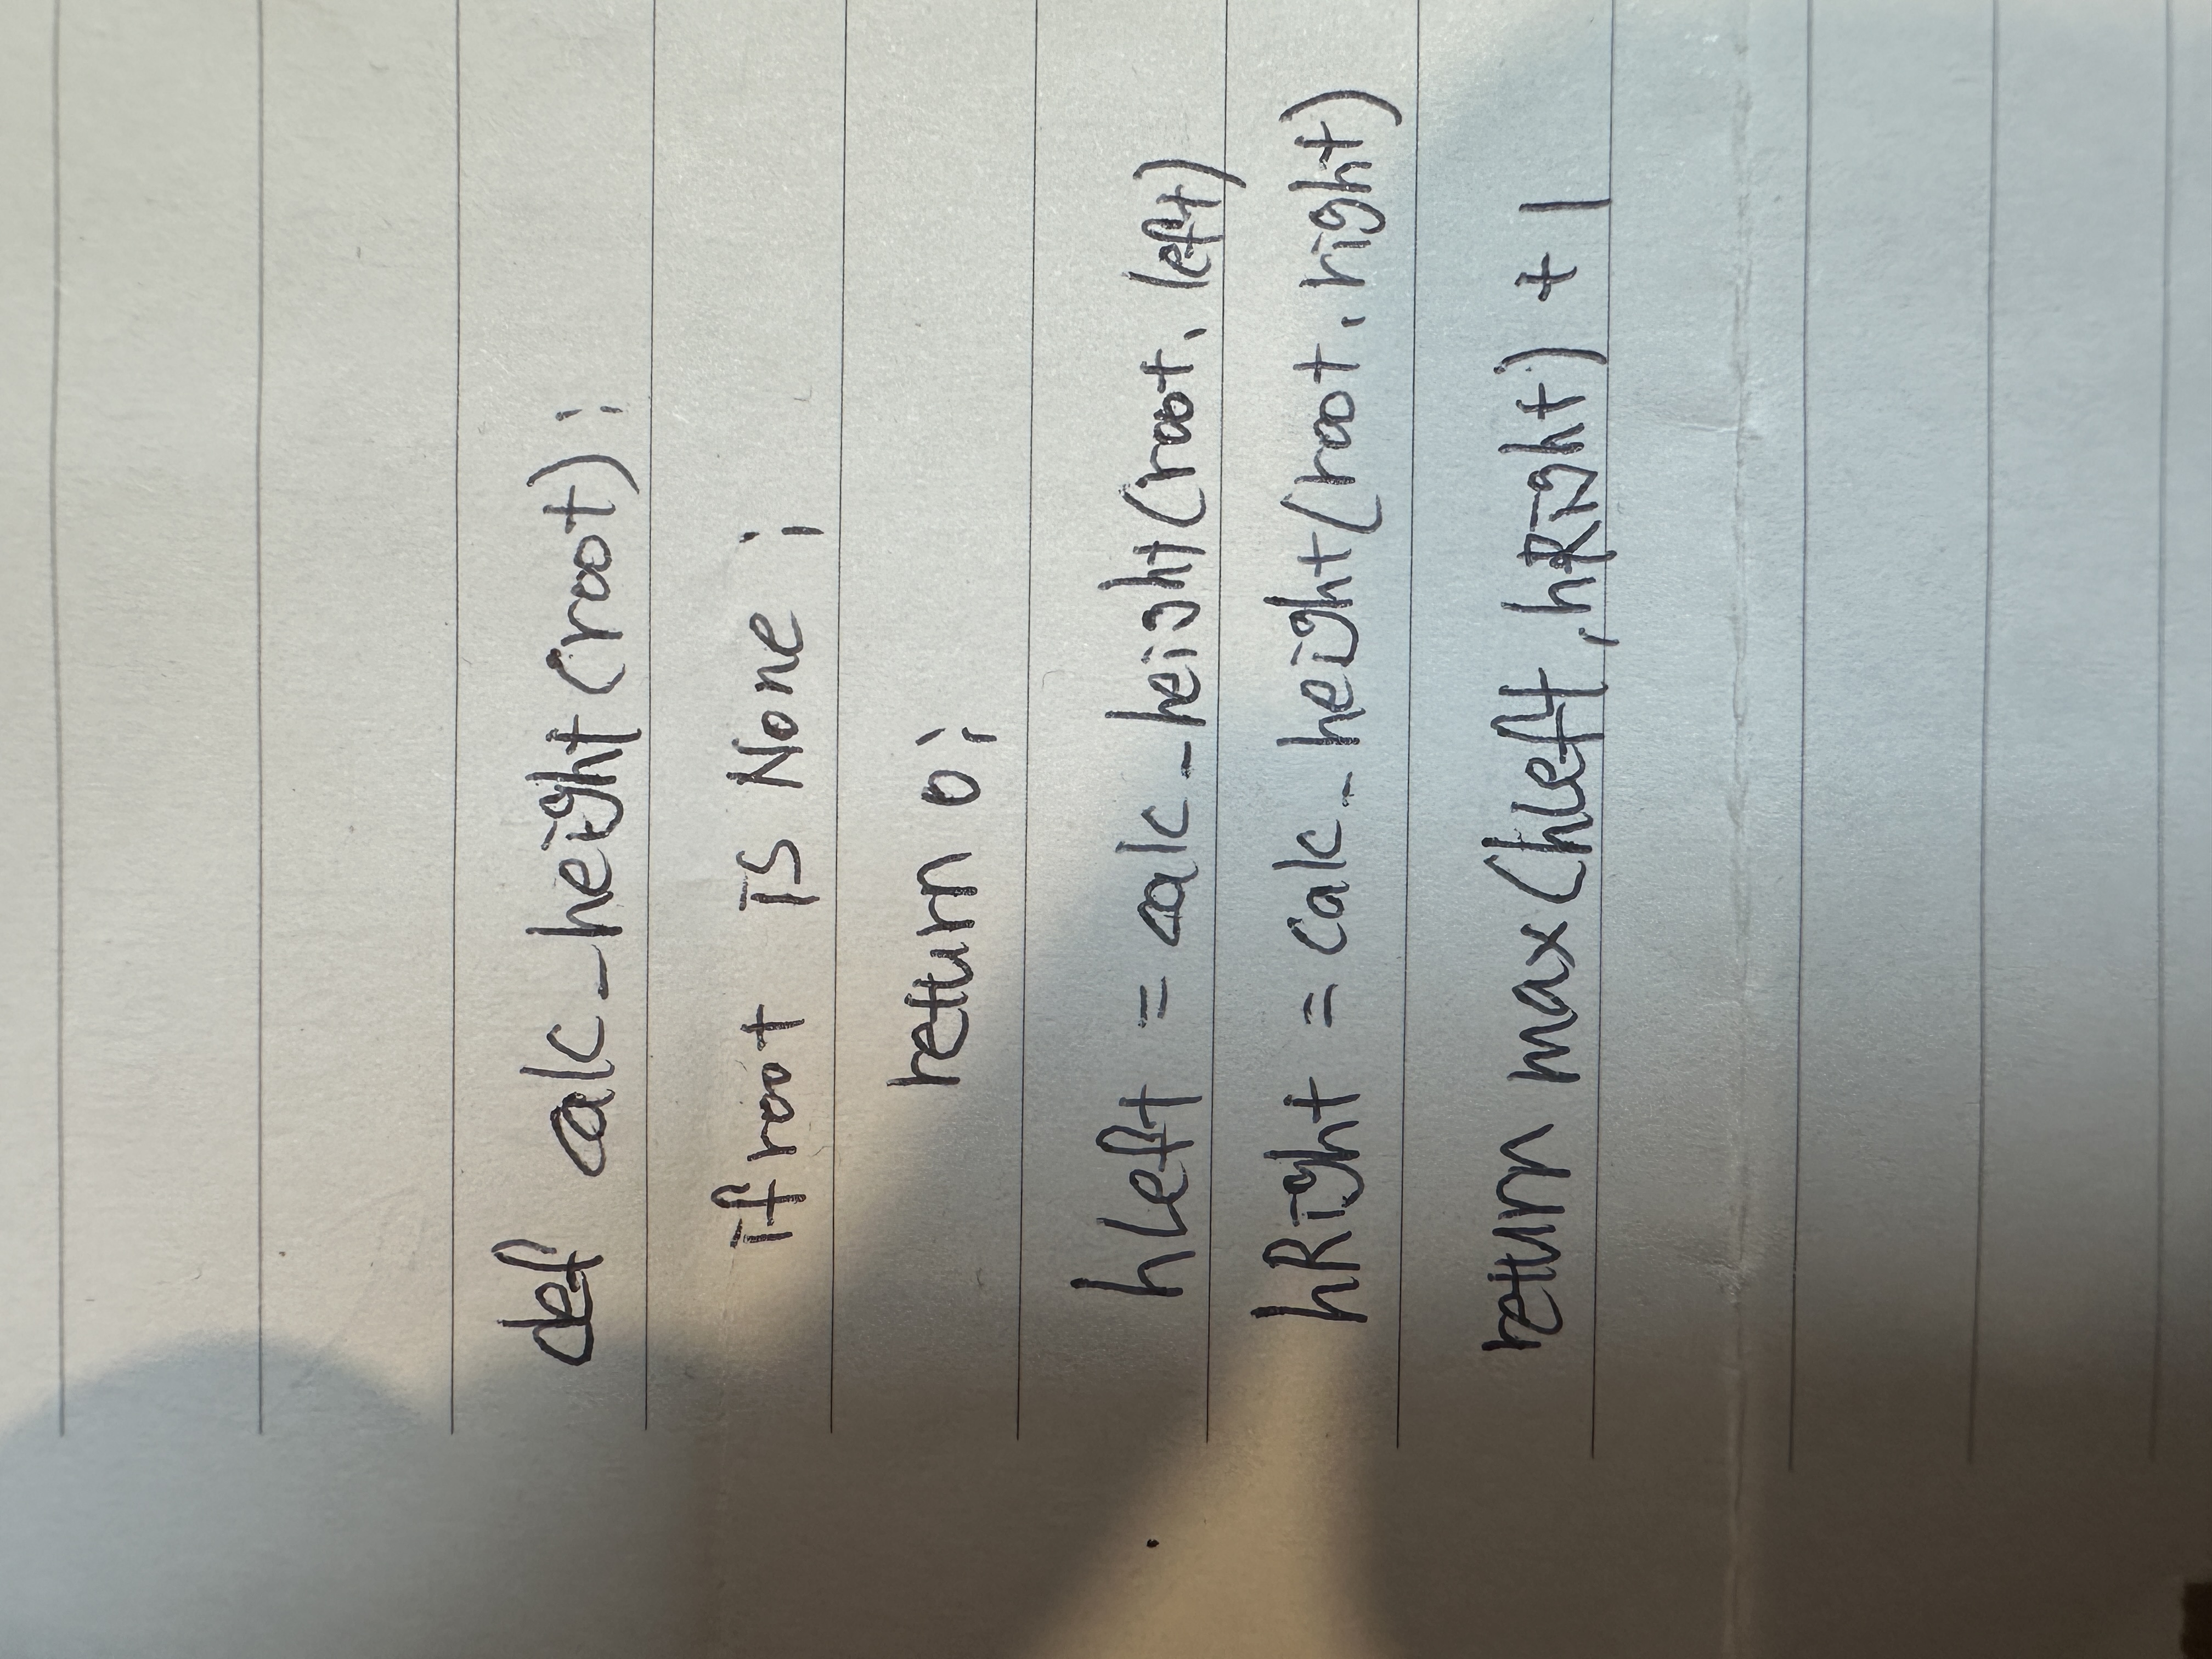 def calc_height(root):
if root is None ;
return 0;
hLeft = calc_height(root.left)
hRight = calc_height(root.right)
return max(hLeft, hRight) + 1